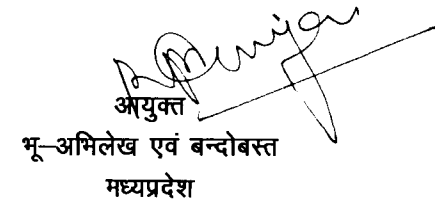 आयुक्त
भू–अभिलेख एवं बन्दोबस्त
मध्यप्रदेश